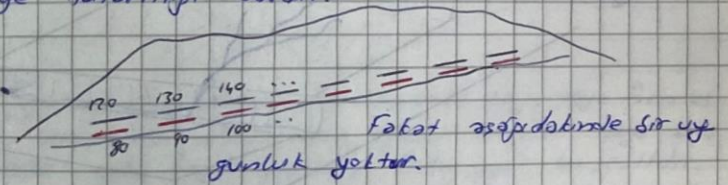 120 130 140 ...
80 90 100 ..
Fakat aşağıdakinde bir uy
gunluk yoktur.